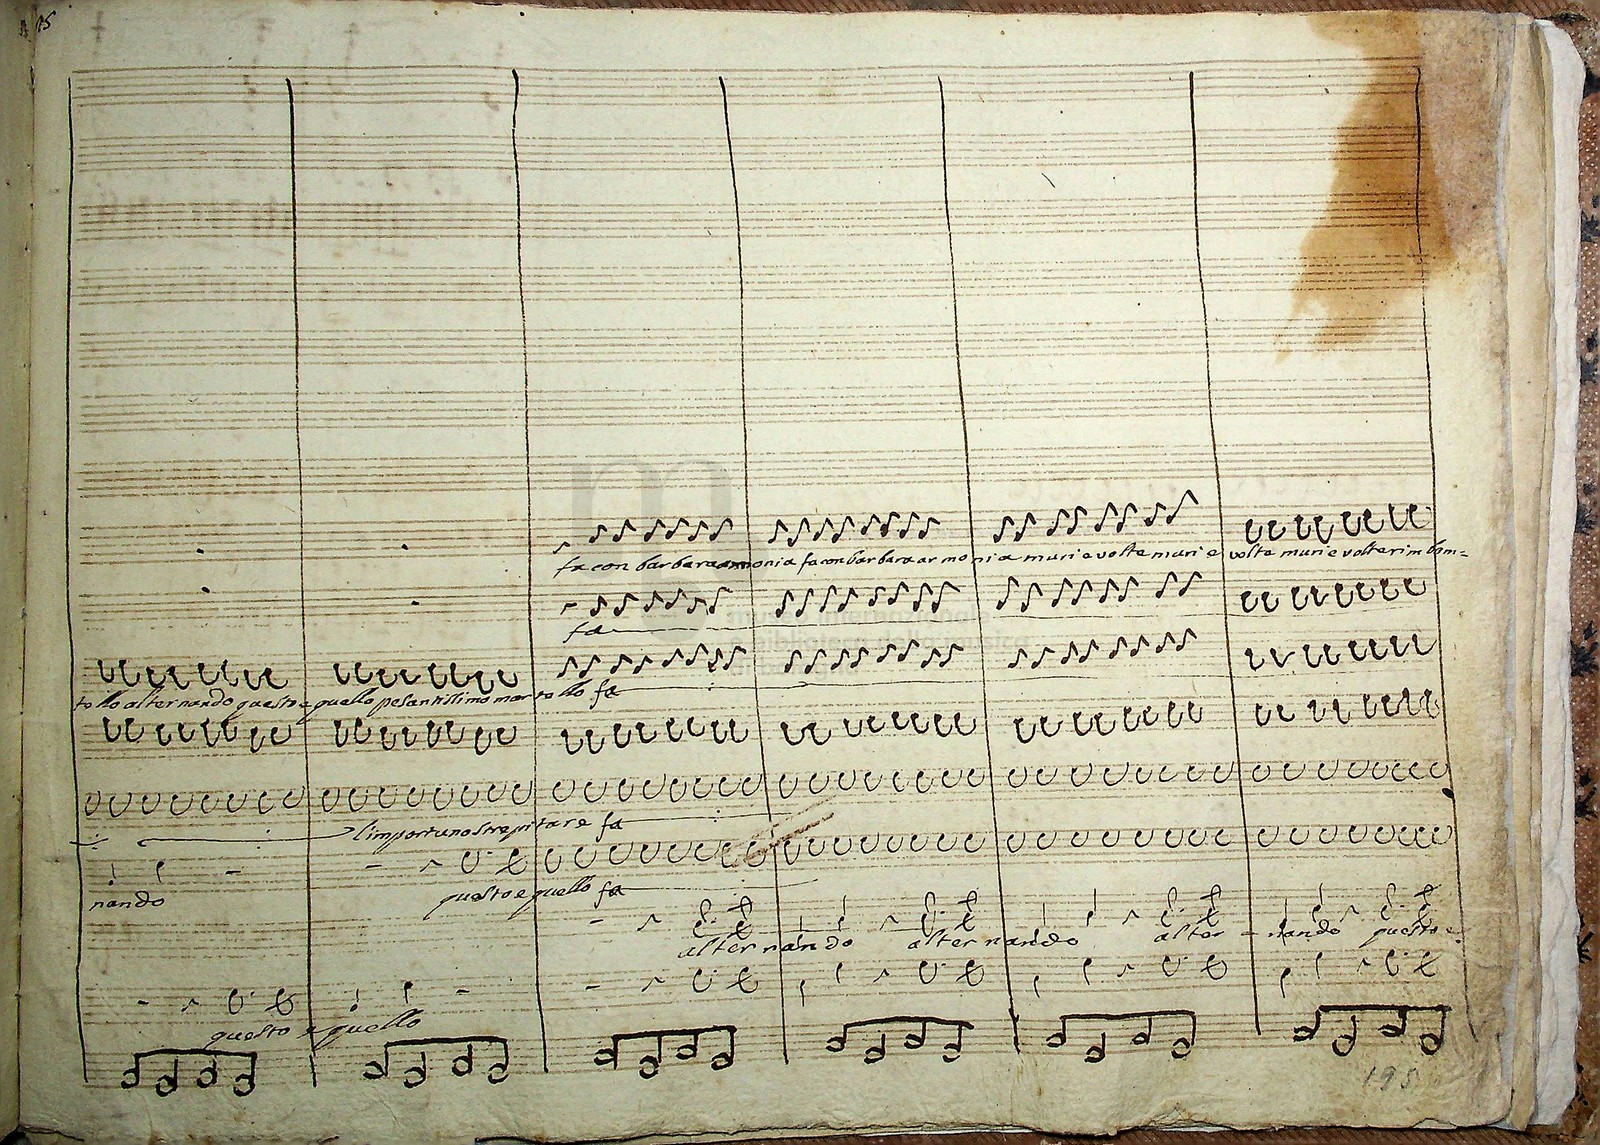 fa con barbara armonia fa con barbara ar monia muri e volte muri e volte muri e volte rimbom=
fa
tello alternando questo e quello pesantissimo martello fa
l'importuno strepitare fa
nando
questo e quello fa
alternando alternando alter - nando questo e
questo e quello
195